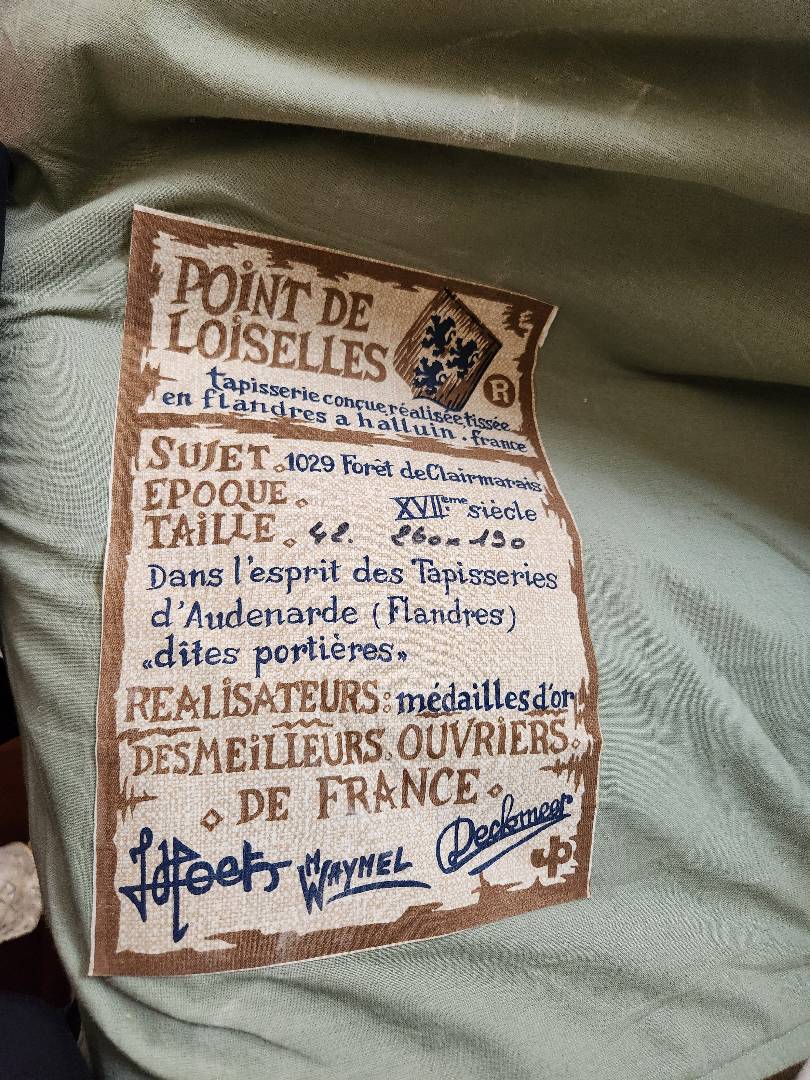 POINT DE
LOISELLES
®
tapisserie conçue, réalisée, tissée
en flandres a halluin . france
SUJET . 1029 Forêt de Clairmarais
EPOQUE . XVIIeme siècle
TAILLE . 42. 260 x 190
Dans l'esprit des Tapisseries
d'Audenarde (Flandres)
«dites portières»
REALISATEURS: médailles d'or
DES MEILLEURS OUVRIERS
DE FRANCE
M WAYMEL